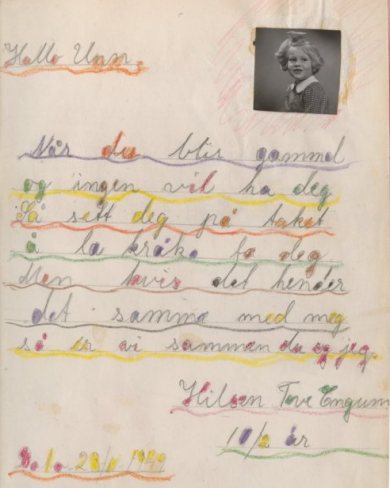 Hallo Unn.
Når du blir gammel
og ingen vil ha deg
Så sett deg på taket
å la kråka ta deg
Men hvis det hender
det samma med meg
så er vi sammen du og jeg.
Hilsen Tove Engum
10/2 år
28/1 1949